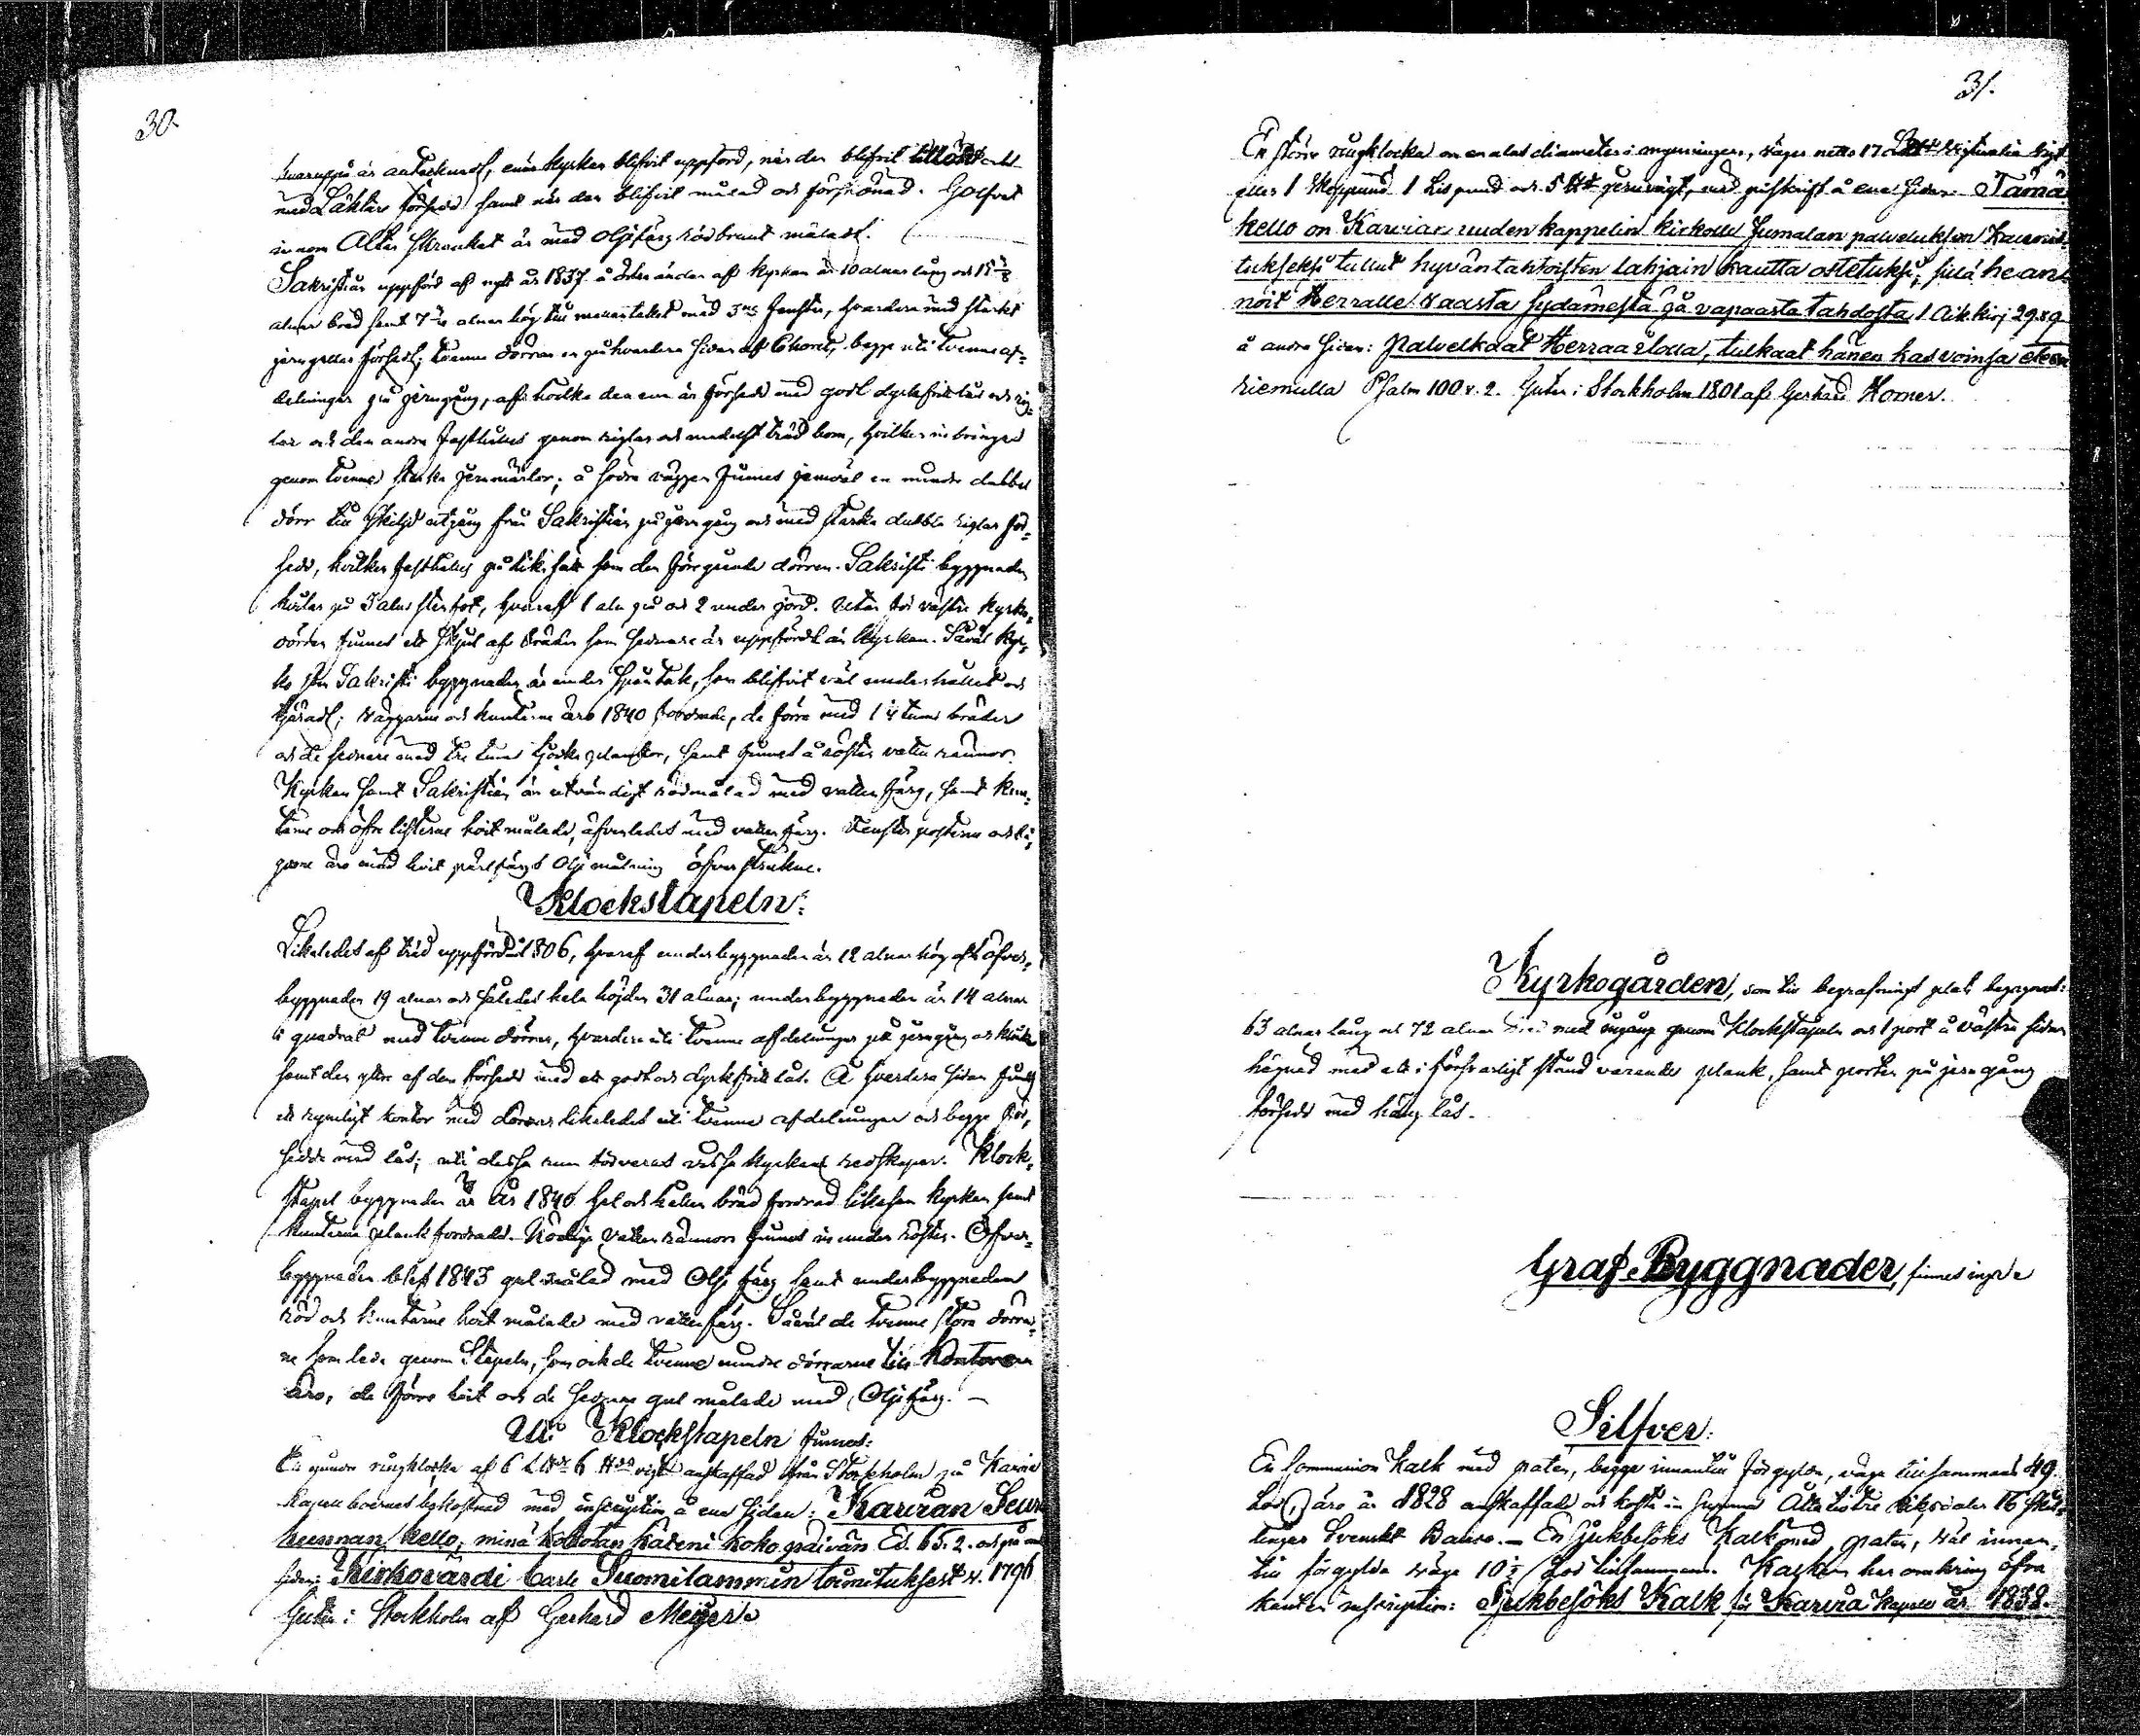 30.
är antecknadt, när kyrkan blifvit uppförd, när den blifvit
med Läktare försedd samt när den blifvit målad och förskönad. Golfvet
innom Altar Skranket är med Oljefärg rödbrunt måladt.
Sakristian uppförd af nytt år 1837 å östra ändan af kyrkan är 10 alnar lång och 15
alnar bred samt 7 alnar hög till med 3ne fenster, hvardera med starka
jerngaller försedt; tvenne dörrar en på hvardera sidan af Choret, begge uti tvenne af-
delningar på jerngång, af hvilka den ena är försedd med godt dyrkfritt lås och rig-
lar och den andra fasthålles genom riglar och medelst träd bom, hvilken inbringas
genom tvenne starka jernmärlor; å södra väggen finnes jemväl en mindre dubbel
dörr till skild utgång från Sakristian på jerngång och med starka dubbla riglar för-
sedd, hvilken fasthålles på lika sätt som den föregående dörren. Sakristi byggnaden
hvilar på 3 alns stenfot, hvaraf 1 aln på och 2 under jord. Utan för västra kyrko-
dörren finnes ett skjul af bräder som sednare är uppfördt än kyrkan. Såväl kyr-
ko som Sakristi byggnaden är under spåntak, som blifvit väl underhållet och
tjäradt; väggarne och knutarne äro 1840 fodrade, de förra med 1 1/4 tums bräder
och de sednare med tre tums tjocka plankor, samt finnes å röstet vatten rännor.
Kyrkan samt Sakristian är utvändigt rödmålad med vatten färg, samt knu-
tarne och öfre listerne hvit målade, äfvenledes med vattenfärg. Fenster posterne och bå-
garne äro med hvit pärlfärg Olje målning öfverstrukne.
Klockstapeln:
Likaledes af träd uppförd 1806, hvaraf underbyggnaden är 12 alnar hög och öfver-
byggnaden 19 alnar och således hela höjden 31 alnar; underbyggnaden är 14 alnar
i quadrat med tvenne dörrar, hvardera uti tvenne afdelningar på jerngång och klinka
samt den yttre af dem försedd med ett godt och dyrkfritt lås. Å hvardera sidan finnes
ett rymligt kontor med dörrar likaledes uti tvenne afdelningar och begge för-
sedde med lås; uti dessa rum förvaras vissa kyrkans redskaper. Klock-
stapel byggnaden är År 1840 hel och hållen bräd fodrad likasom kyrkan samt
knutarne plank fodrade. Nödige vatten rännor finnes in under röstet. Öfver-
byggnaden blef 1843 gul målad med Olje färg samt underbyggnaden
röd och knutarne hvit målade med vattenfärg. Såväl de tvenne stora dörrar-
ne som leda genom Stapeln, som ock de tvenne mindre dörrarne till Kontoren
äro, de förra hvit och de sednare gul målade med Oljefärg. —
Uti Klockstapeln finnes:
En mindre ringklocka af 6 L 6 vigt anskaffad från Stockholm på Karvia
Kapell boernes bekostnad med inscription å ena sidan: Karvian Seura
kunnan kello, minä kokotan käteni koko päivän Es. 65. 2. och på andra
sidan: Kirkovärdi Carls Suomilammin toimituksest v. 1796
Guten i Stockholm af Gerhard Meyer
31.
En större ringklocka en alns diameter i mynningen, väger netto 17 victualie vigt
eller 1 Skeppund 1 Lispund och 5 jernvigt, med påskrift å ena sidan: Tämä
kello on Karvian uuden kappelin kirkolle Jumalan palveluksen kaunis-
tukseksi tullut hyväntahtoisten lahjain kautta ostetuksi; sillä he an-
noit Herralle vaasta sydämestä ja vapaasta tahdosta 1 Aik. kirj. 29. v 9
å andra sidan: Palvelkaat Herraa ilolla, tulkaat hänen kasvoinsa eteen
riemulla Psalm 100 v. 2. Guten i Stockholm 1801 af Gerhard Horner.
Kyrkogården, som till begrafnings plats begagnas:
63 alnar lång och 72 alnar bred med ingång genom Klockstapeln och 1 port å västra sidan
hägnad med ett i försvarligt stånd varande plank, samt porten på jerngång
försedd med häng lås.
Graf-Byggnader, finnes ingen
Silfver:
En Communion Kalk med paten, begge innantill förgylda, väga tillsammans 49
Lod, äro år 1828 anskaffade och kosta in summa Åttatiotre Riksdaler 16 skil-
lingar Svenskt Banco. — En Sjukbesöks Kalk med paten, väl innan-
till förgylda väga 10 1/2 Lod tillsammans. Kalken har omkring öfra
kanten inscription: Sjukbesöks Kalk för Karvia Kapell år 1838.